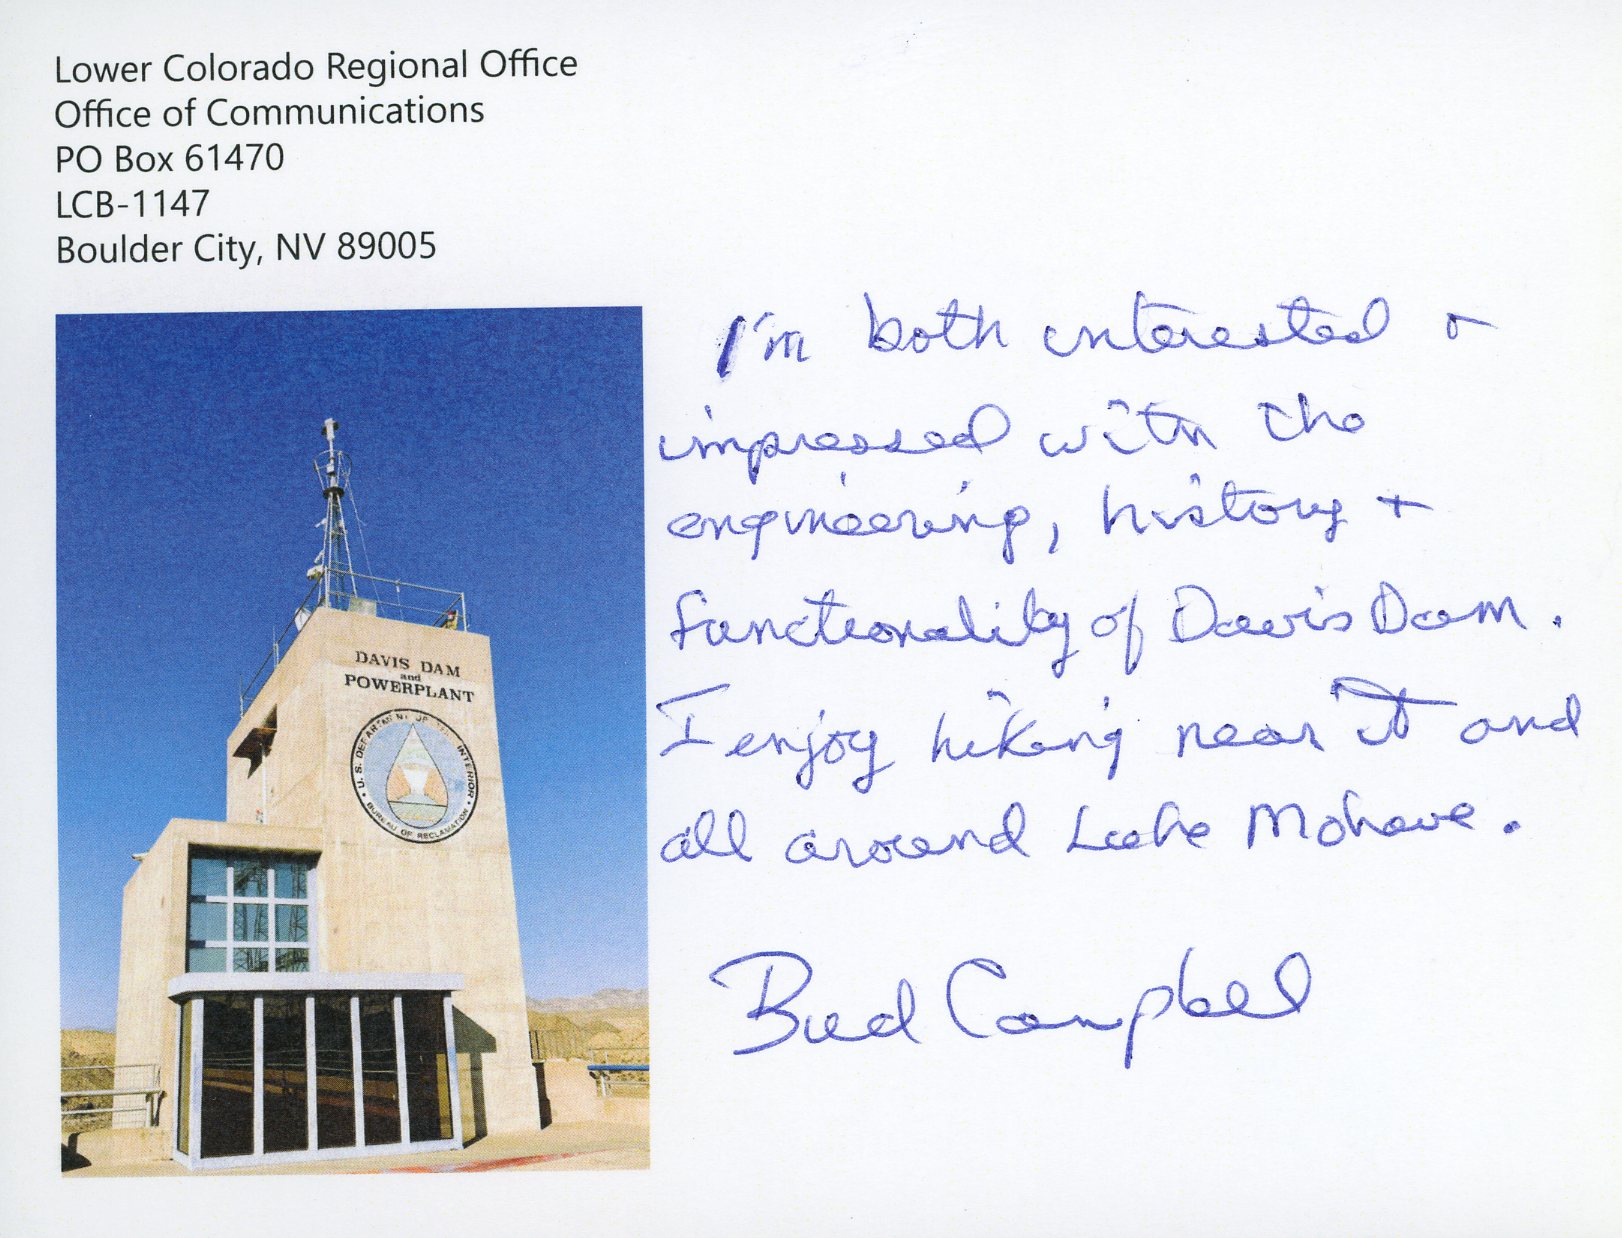 Lower Colorado Regional Office
Office of Communications
PO Box 61470
LCB-1147
Boulder City, NV 89005
I'm both interested +
impressed with the
engineering, history +
functionality of Davis Dam.
I enjoy hiking near it and
all around Lake Mohave.
Bud Campbell
DAVIS DAM
and
POWERPLANT
U.S. DEPARTMENT OF THE INTERIOR
BUREAU OF RECLAMATION